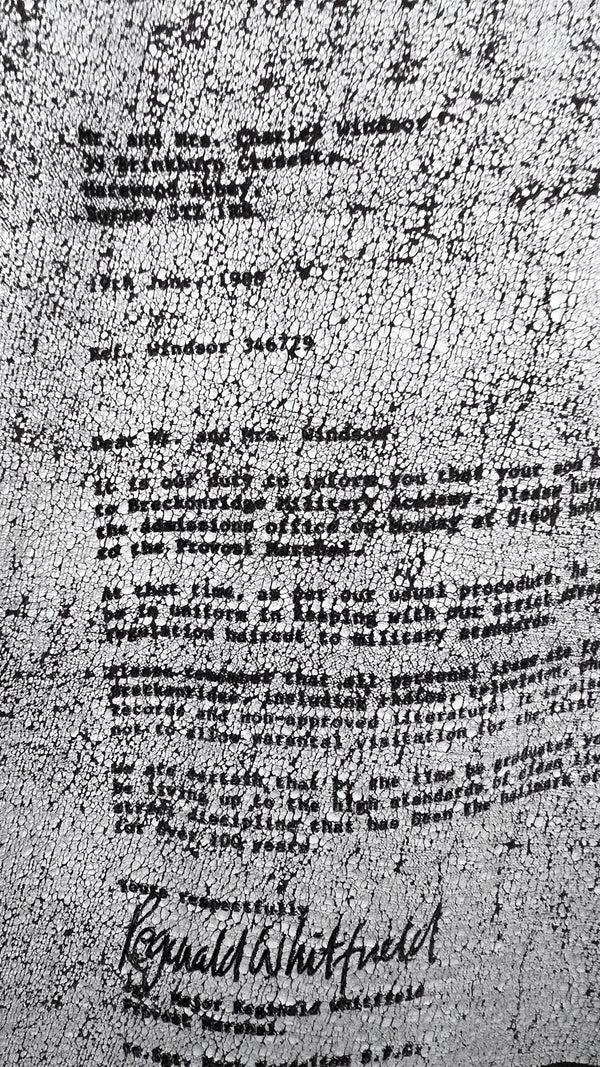 Mr. and Mrs. Charles Windsor
39 Brinkburn
Harewood Abbey,
Surrey
19th June, 1980
Ref. Windsor 346779
Dear Mr. and Mrs. Windsor,
It is our duty to inform you that your son
to Breckonridge Military Academy. Please have
the admissions office on Monday at 0:600
to the Provost Marshal.
At that time, as per our usual procedure, he
be in uniform in keeping with our strict
regulation haircut to military standards.
Please that all personal items are
Breckonridge, including radios, television,
records and non-approved literature. It is also
not to allow parental visitation for the first
We are certain that by the time he graduates
be living up to the high standards of clean
strict discipline that has been the hallmark of
for over 100 years.
Yours respectfully
Reginald Whitfield
Major Reginald Whitfield
Provost Marshal.